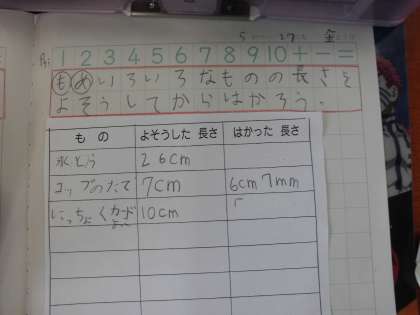 5 27 金
1 2 3 4 5 6 7 8 9 10 + - =
もめ いろいろなものの長さを
よそうしてからはかろう。
もの よそうした 長さ はかった 長さ
水とう 26cm
コップのたて 7cm 6cm7mm
にっちょくカード 10cm